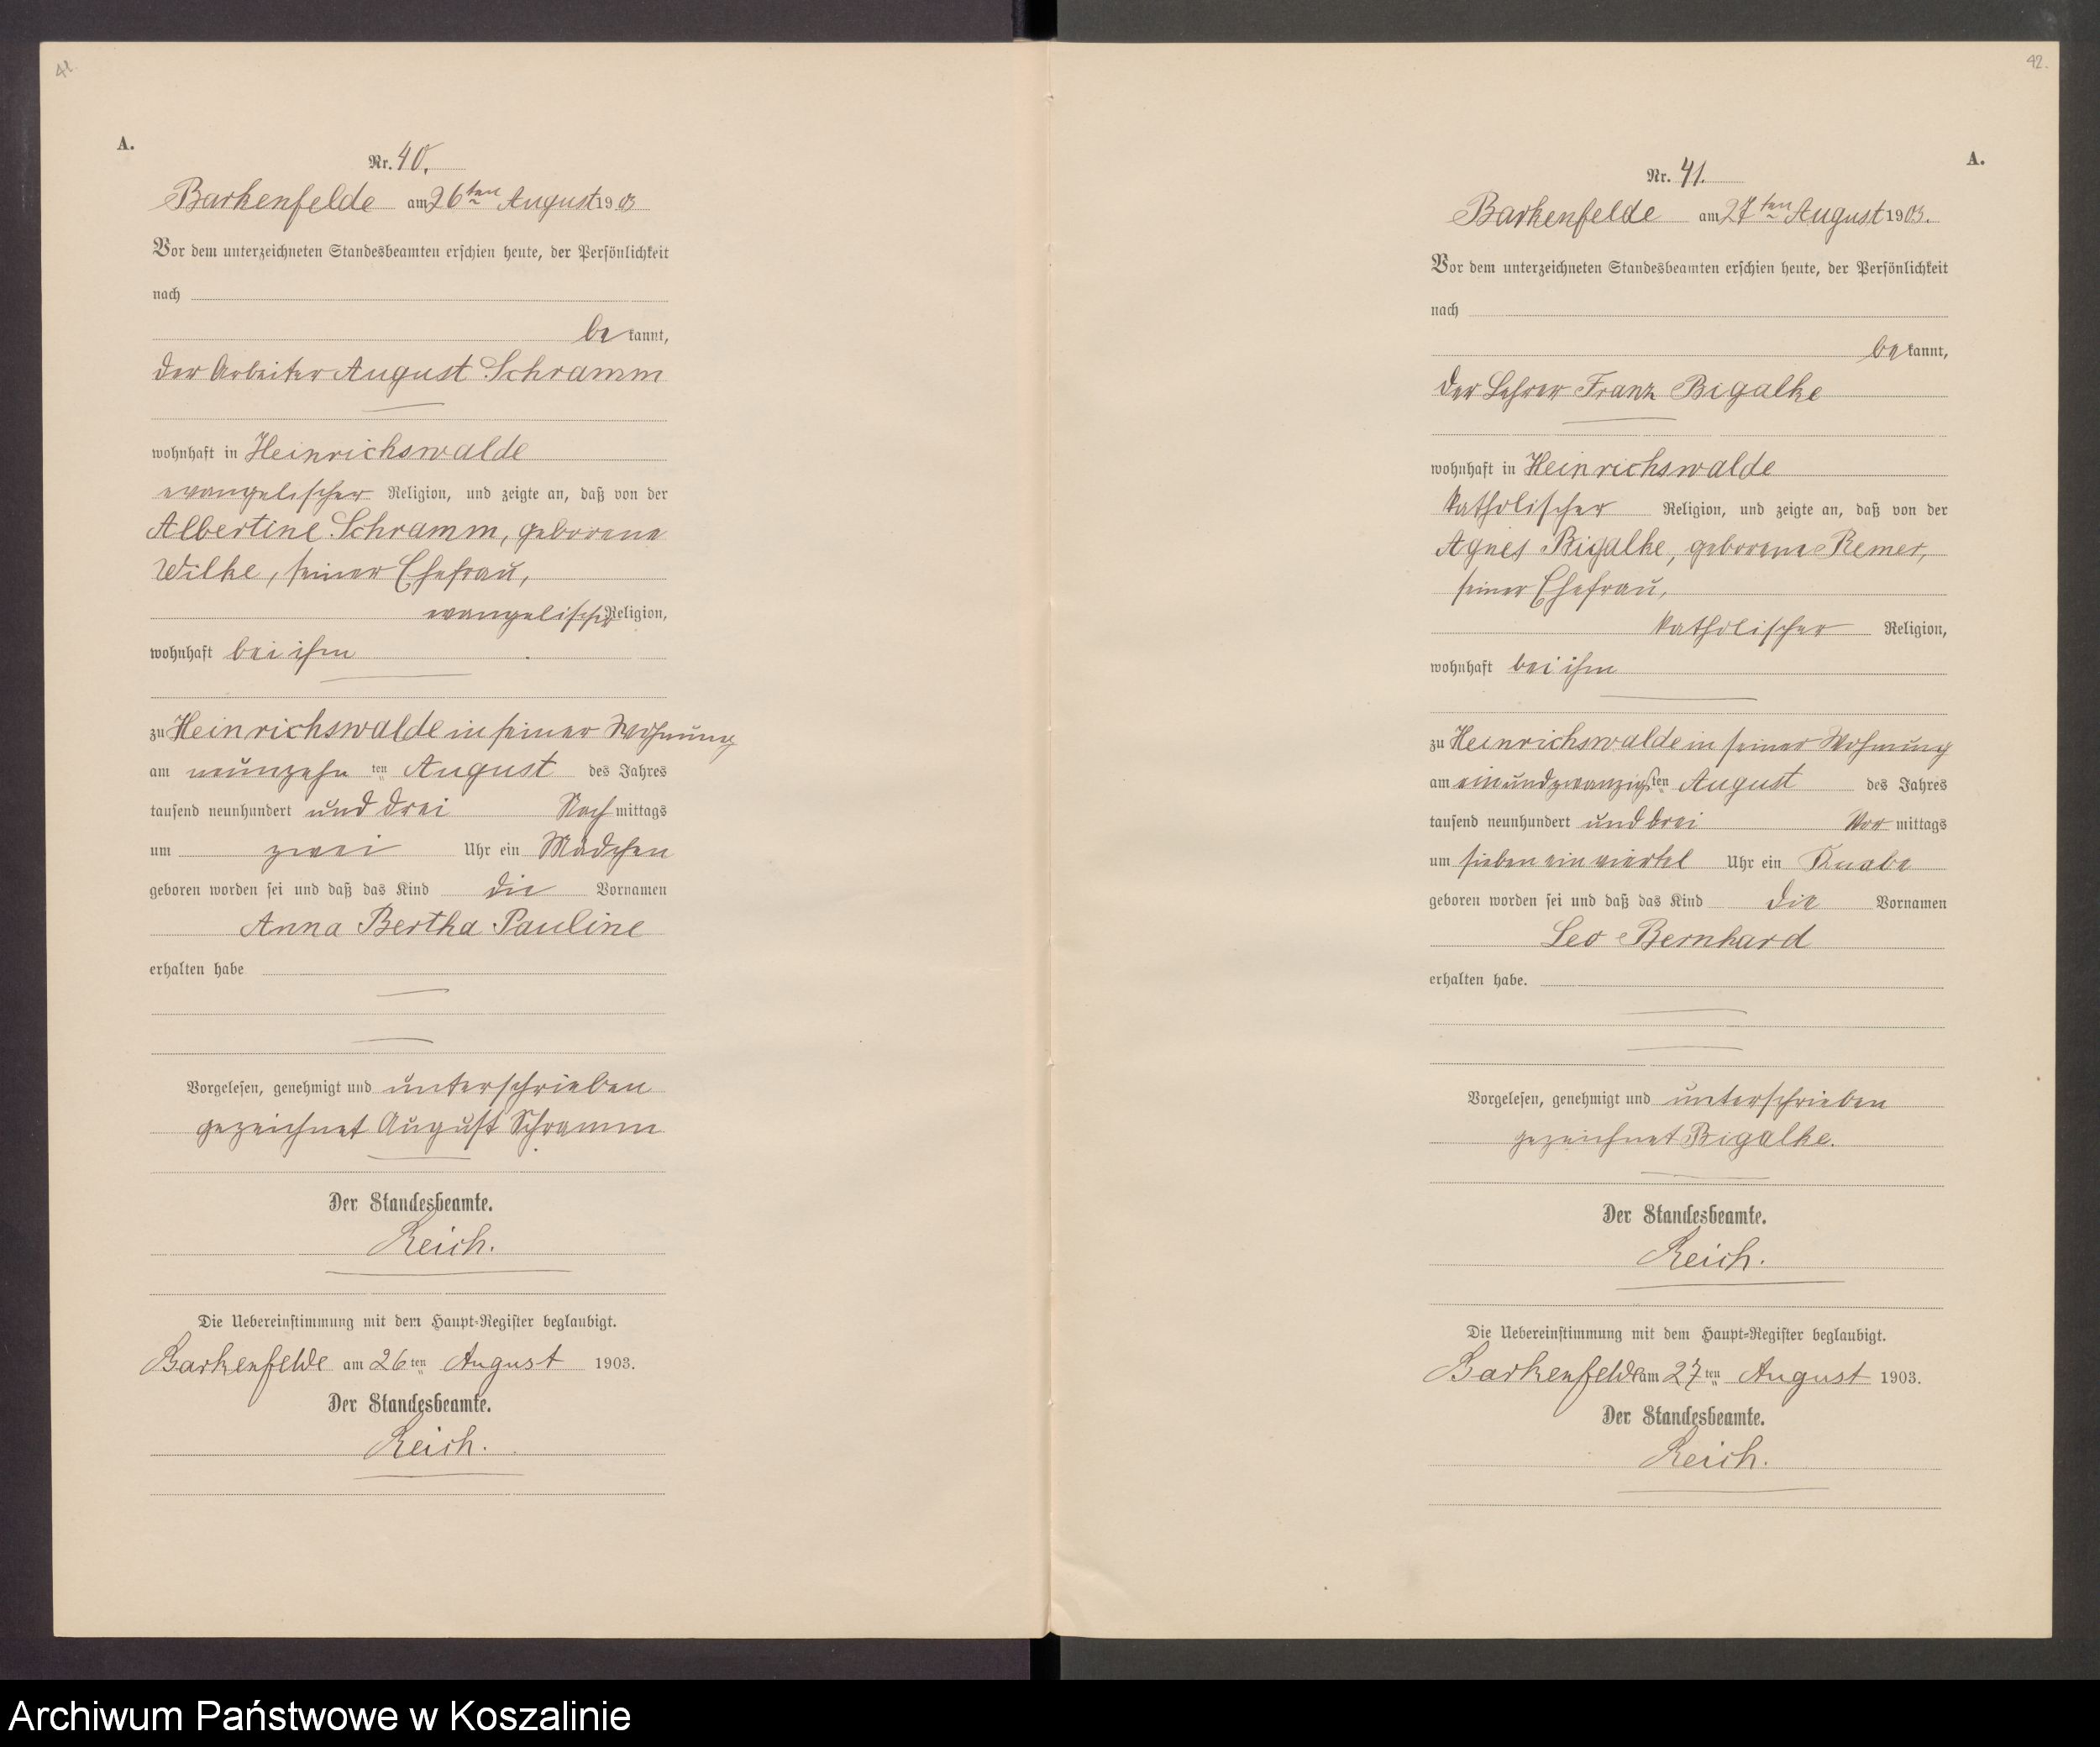 41.
A.
Nr. 40.
Barkenfelde am 26ten August 1903
Vor dem unterzeichneten Standesbeamten erschien heute, der Persönlichkeit
nach
bekannt,
der Arbeiter August Schramm
wohnhaft in Heinrichswalde
evangelischer Religion, und zeigte an, daß von der
Albertine Schramm, geborene
Wilke, seiner Ehefrau,
evangelischer Religion,
wohnhaft bei ihm
zu Heinrichswalde in seiner Wohnung
am neunzehnten August des Jahres
tausend neunhundert und drei Nachmittags
um zwei Uhr ein Mädchen
geboren worden sei und daß das Kind die Vornamen
Anna Bertha Pauline
erhalten habe
Vorgelesen, genehmigt und unterschrieben
gezeichnet August Schramm
Der Standesbeamte.
Reich.
Die Uebereinstimmung mit dem Haupt-Register beglaubigt.
Barkenfelde am 26ten August 1903.
Der Standesbeamte.
Reich.
42.
A.
Nr. 41.
Barkenfelde am 27ten August 1903.
Vor dem unterzeichneten Standesbeamten erschien heute, der Persönlichkeit
nach
bekannt,
der Lehrer Franz Bigalke
wohnhaft in Heinrichswalde
katholischer Religion, und zeigte an, daß von der
Agnes Bigalke, geborene Remer,
seiner Ehefrau,
katholischer Religion,
wohnhaft bei ihm
zu Heinrichswalde in seiner Wohnung
am einundzwanzigsten August des Jahres
tausend neunhundert und drei Vormittags
um sieben ein viertel Uhr ein Knabe
geboren worden sei und daß das Kind die Vornamen
Leo Bernhard
erhalten habe.
Vorgelesen, genehmigt und unterschrieben
gezeichnet Bigalke.
Der Standesbeamte.
Reich.
Die Uebereinstimmung mit dem Haupt-Register beglaubigt.
Barkenfelde am 27ten August 1903.
Der Standesbeamte.
Reich.
Archiwum Państwowe w Koszalinie